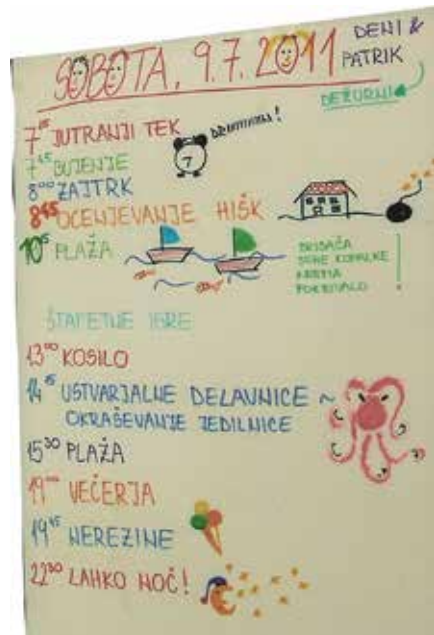 SOBOTA, 9.7.2011
DENI &
PATRIK
DEŽURNI
7¹⁵ JUTRANJI TEK
7⁴⁵ BUJENJE
7
8⁰⁰ ZAJTRK
8⁴⁵ OCENJEVANJE HIŠK
10¹⁵ PLAŽA
BRISAČA
SUHE KOPALKE
KREMA
POKRIVALO
ŠTAFETNE IGRE
13⁰⁰ KOSILO
14¹⁵ USTVARJALNE DELAVNICE ~
OKRAŠEVANJE JEDILNICE
15³⁰ PLAŽA
19⁰⁰ VEČERJA
19⁴⁵ NEREZINE
22³⁰ LAHKO NOČ!